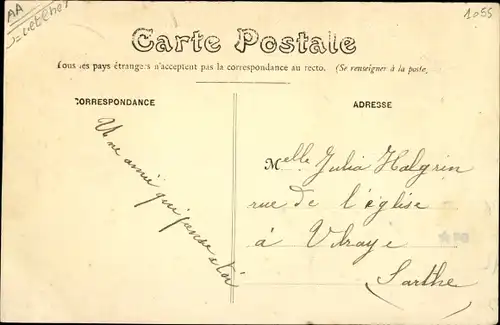 AA
1055
Carte Postale
Tous les pays étrangers n'acceptent pas la correspondance au recto. (Se renseigner à la poste)
CORRESPONDANCE
ADRESSE
Une amie qui pense a toi
Melle Julia Halgrin
rue de l'église
à Vibraye
Sarthe